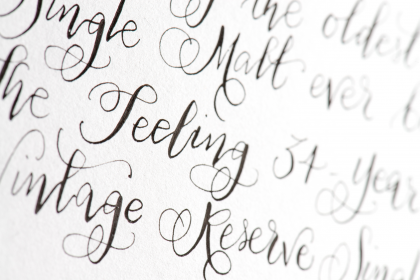 Single
the oldest
Malt ever
the Feeling 34-year
Vintage Reserve Sing